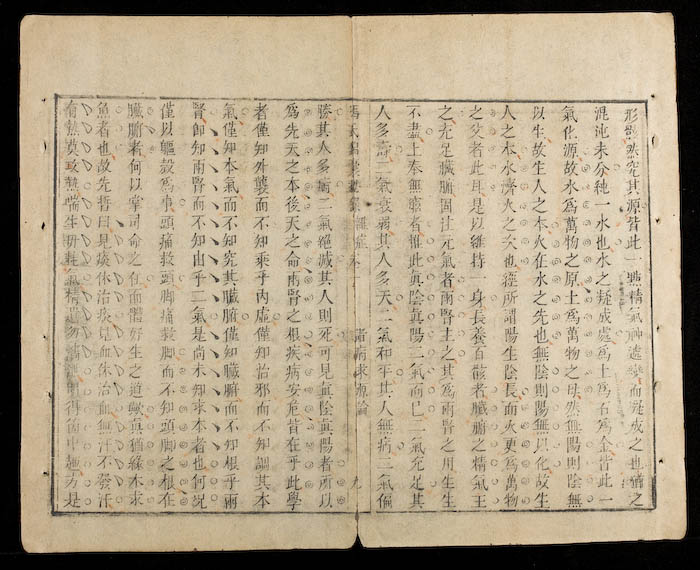 形體然究其源皆此一點精氣神遞變而凝成之也猶之
混沌未分純一水也水之凝成處爲土爲石爲金皆此一
氣化源故水爲萬物之原土爲萬物之母然無陽則陰無
以生故生人之本火在水之先也無陰則陽無以化故生
人之本水濟火之次也經所謂陽生陰長而火更爲萬物
之父者此耳是以維持一身長養百骸者臟腑之精氣主
之充足臟腑固注元氣者兩腎主之其爲兩腎之用生生
不盡上奉無窮者惟此眞陰眞陽二氣而已二氣充足其
人多壽二氣衰弱其人多夭二氣和平其人無病二氣偏
馮氏錦囊秘錄 雜症 諸病求源論 九
勝其人多病二氣絕滅其人則死可見眞陰眞陽者所以
爲先天之本後天之命兩腎之根疾病安危皆在乎此學
者僅知外襲而不知乘乎內虛僅知治邪而不知調其本
氣僅知本氣而不知究其臟腑僅知臟腑而不知根乎兩
腎卽知兩腎而不知由乎二氣是尚未知求本者也何況
僅以軀殼爲事頭痛救頭脚痛救脚而不知頭脚之根在
臟腑者何以掌司命之任而體好生之道歟眞猶緣木求
魚者也故先哲曰見痰休治痰見血休治血無汗不發汗
有熱莫攻熱喘生毋耗氣精遺勿澀泄明得箇中趣方是